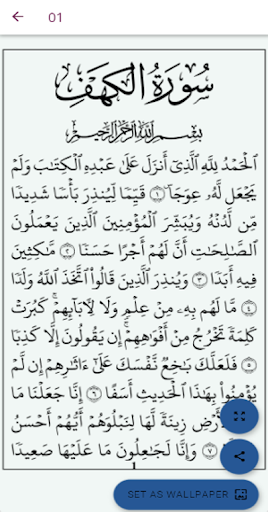 01
سُورَةُ الكَهْفِ
بِسْمِ اللَّهِ الرَّحْمَٰنِ الرَّحِيمِ
ٱلۡحَمۡدُ لِلَّهِ ٱلَّذِيٓ أَنزَلَ عَلَىٰ عَبۡدِهِ ٱلۡكِتَٰبَ وَلَمۡ
يَجۡعَل لَّهُۥ عِوَجَاۜ ١ قَيِّمٗا لِّيُنذِرَ بَأۡسٗا شَدِيدٗا
مِّن لَّدُنۡهُ وَيُبَشِّرَ ٱلۡمُؤۡمِنِينَ ٱلَّذِينَ يَعۡمَلُونَ
ٱلصَّٰلِحَٰتِ أَنَّ لَهُمۡ أَجۡرًا حَسَنٗا ٢ مَّٰكِثِينَ
فِيهِ أَبَدٗا ٣ وَيُنذِرَ ٱلَّذِينَ قَالُواْ ٱتَّخَذَ ٱللَّهُ وَلَدٗا
٤ مَّا لَهُم بِهِۦ مِنۡ عِلۡمٖ وَلَا لِأٓبَآئِهِمۡۚ كَبُرَتۡ
كَلِمَةٗ تَخۡرُجُ مِنۡ أَفۡوَٰهِهِمۡۚ إِن يَقُولُونَ إِلَّا كَذِبٗا
٥ فَلَعَلَّكَ بَٰخِعٞ نَّفۡسَكَ عَلَىٰٓ ءَاثَٰرِهِمۡ إِن لَّمۡ
يُؤۡمِنُواْ بِهَٰذَا ٱلۡحَدِيثِ أَسَفًا ٦ إِنَّا جَعَلۡنَا مَا
زِينَةٗ لَّهَا لِنَبۡلُوَهُمۡ أَيُّهُمۡ أَحۡسَنُ
٧ وَإِنَّا لَجَٰعِلُونَ مَا عَلَيۡهَا صَعِيدٗا
1
SET AS WALLPAPER